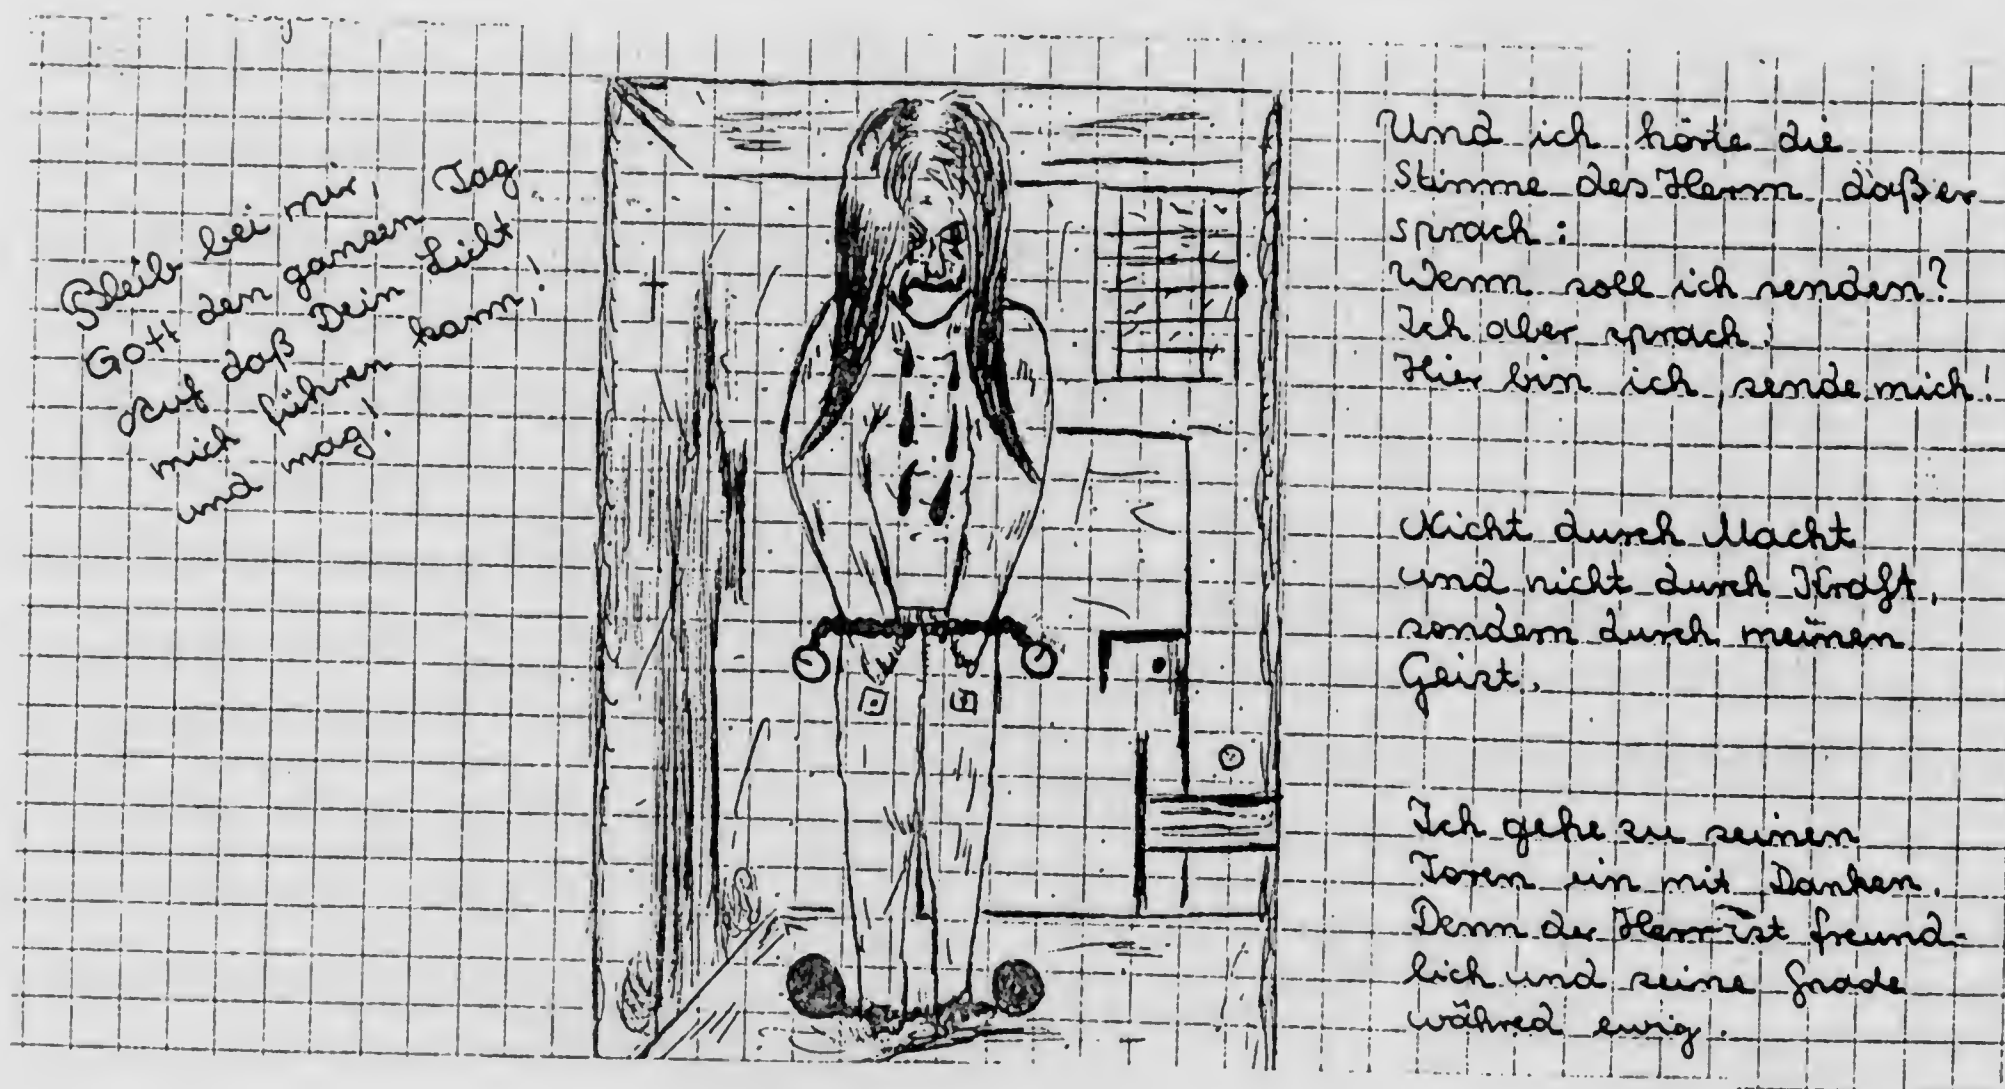 Bleib bei mir,
Gott den ganzen Tag
auf daß Dein Licht
mich führen kann,
und mag!
Und ich hörte die
Stimme des Herrn, daß er
sprach:
Wenn soll ich senden?
Ich aber sprach:
Hier bin ich, sende mich!
Nicht durch Macht
und nicht durch Kraft,
sondern durch meinen
Geist.
Ich gehe zu seinen
Toren ein mit Danken.
Denn der Herr ist freund-
lich und seine Gnade
währed ewig.